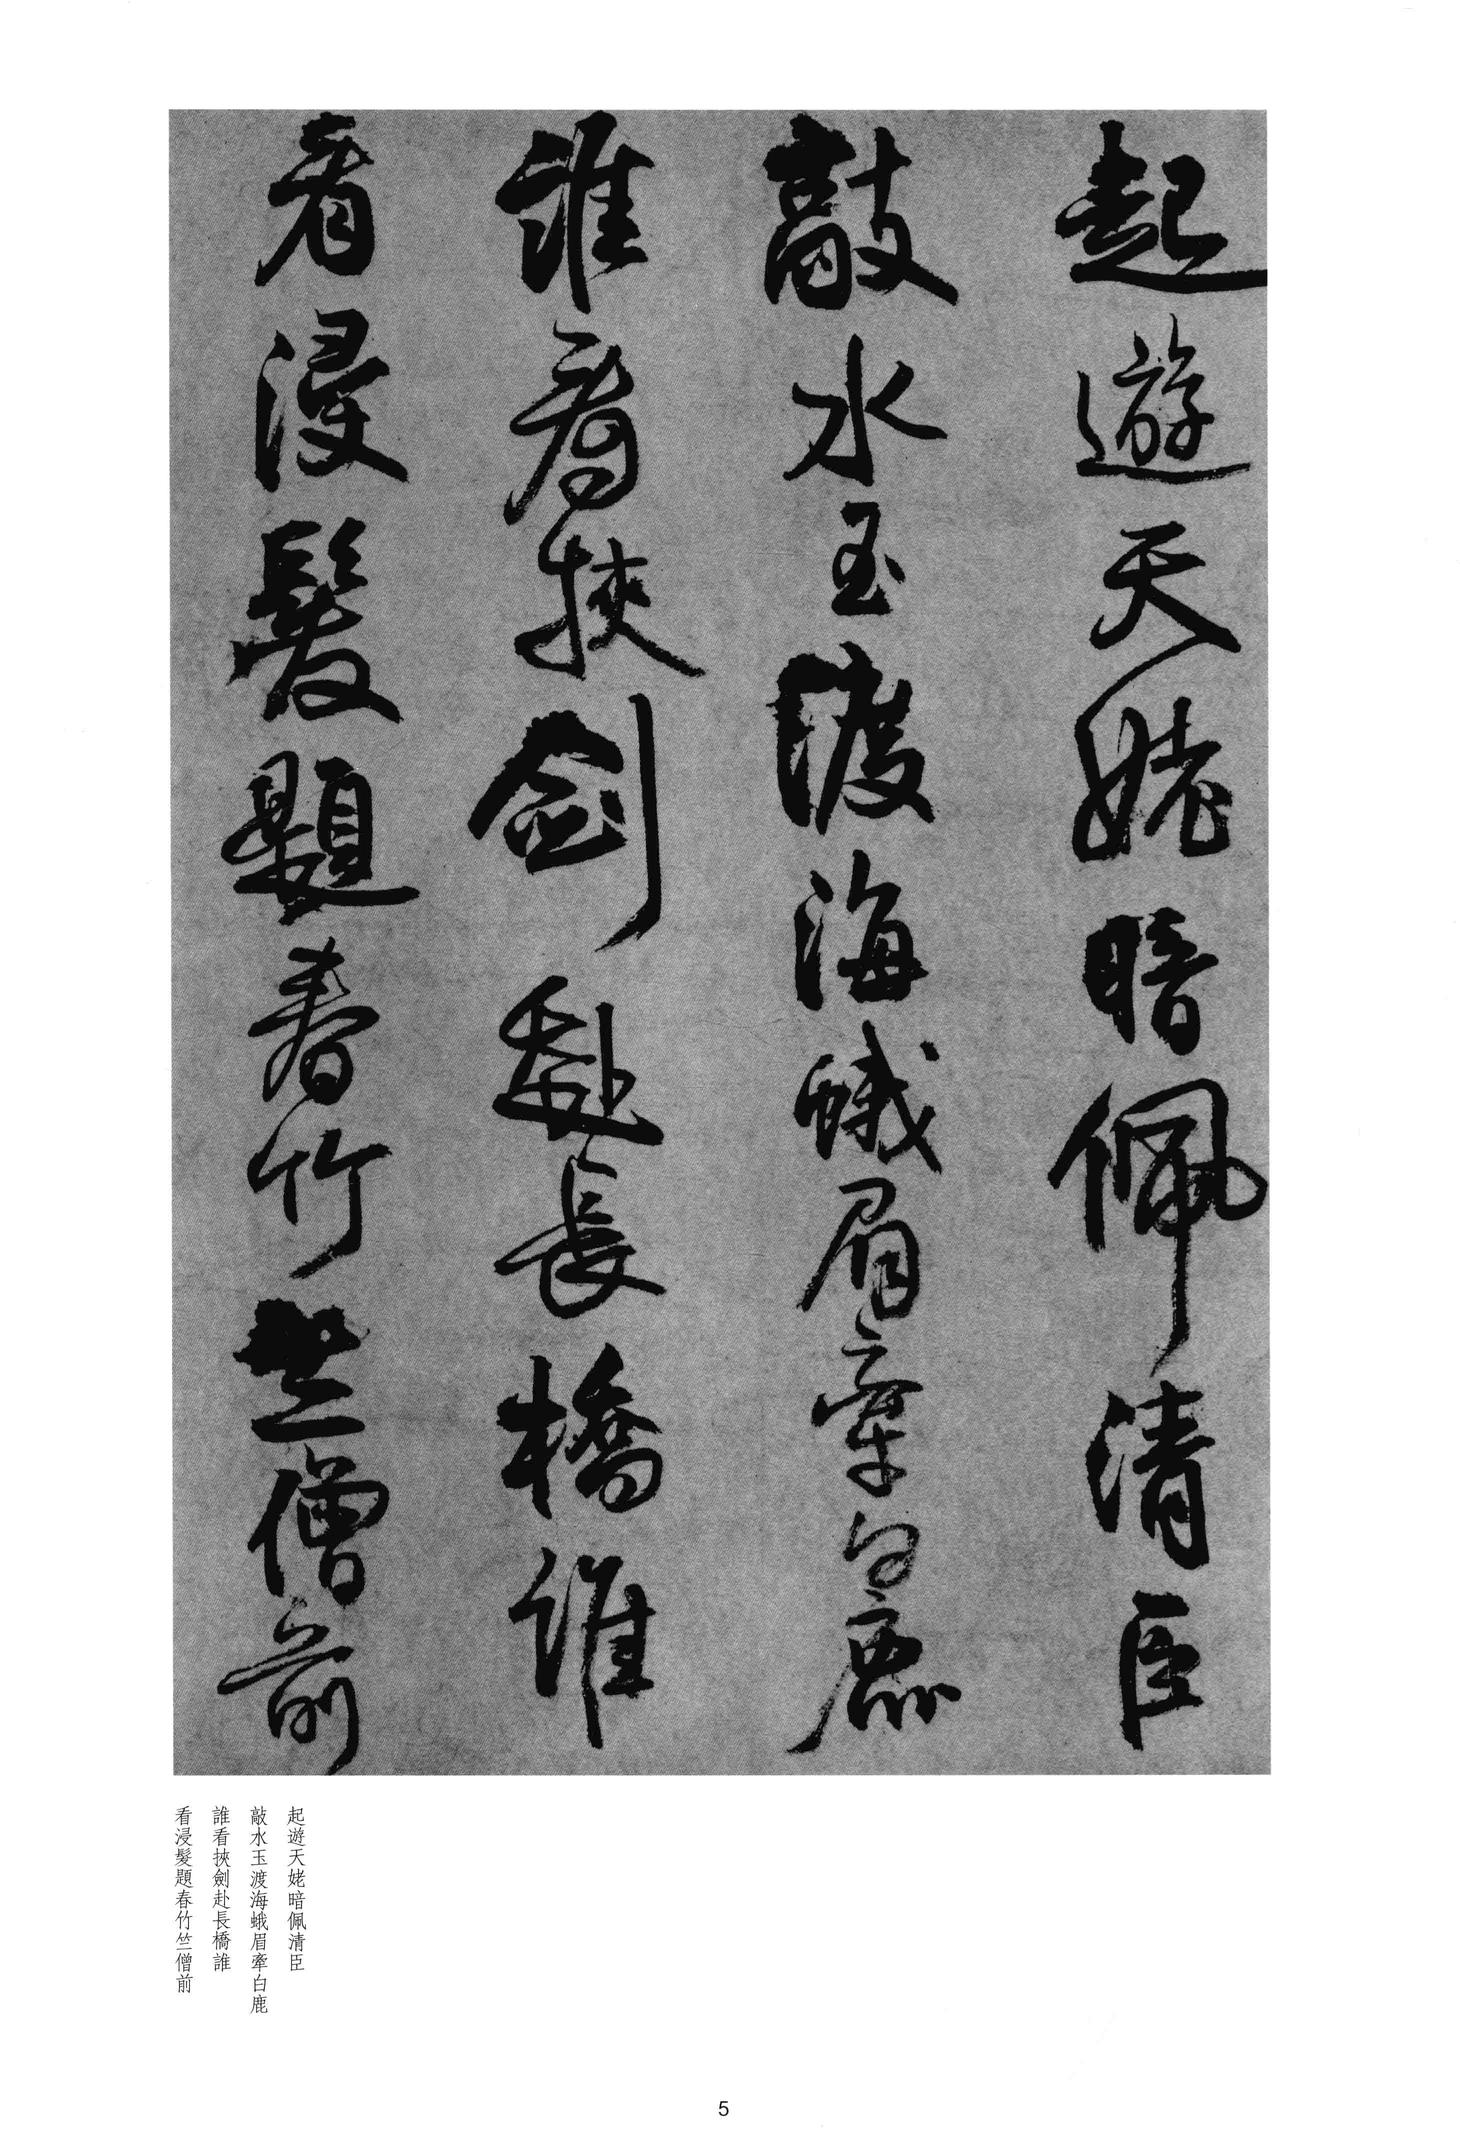 起遊天姥暗佩清臣
敲水玉渡海蛾眉牽白鹿
誰看挾劍赴長橋誰
看浸髮題春竹竺僧前
起遊天姥暗佩清臣
敲水玉渡海蛾眉牽白鹿
誰看挾劍赴長橋誰
看浸髮題春竹竺僧前
5